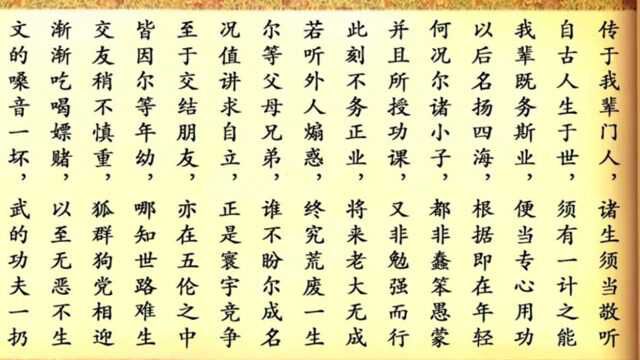 传于我辈门人，诸生须当敬听
自古人生于世，须有一计之能
我辈既务斯业，便当专心用功
以后名扬四海，根据即在年轻
何况尔诸小子，都非蠢笨愚蒙
并且所授功课，又非勉强而行
此刻不务正业，将来老大无成
若听外人煽惑，终究荒废一生
尔等父母兄弟，谁不盼尔成名
况值讲求自立，正是寰宇竞争
至于交结朋友，亦在五伦之中
皆因尔等年幼，哪知世路难生
交友稍不慎重，狐群狗党相迎
渐渐吃喝嫖赌，以至无恶不生
文的嗓音一坏，武的功夫一扔